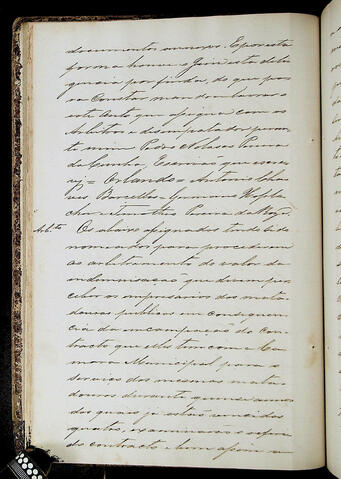 documentos annexos. E por esta
forma houve o Juiz esta deli
gencia por finda, do que pa
ra Constar mandou lavrar o
este Auto que assigna com os
Arbitros e desempatador peran
te mim Pedro Nolasco Pereira
da Cunha, Escrivão que escre
vi = Orlando = Antonio Cha
ves Barcellos = Germano Hassla
cher = Timotheo Pereira da Rosa
Os abaixo assignados tendo sido
nomeados para procederem
ao arbitramento do valor da
indemnisação que devem per
ceber os empresarios dos mata
douros publicos em consequen
cia da encampação do Con
tracto que elles tem com a Ca
mara Municipal para o
serviço dos mesmos mata
douros durante quinze annos
dos quaes já estão vencidos
quatro, examinarão o refere
do contracto e bem assim o